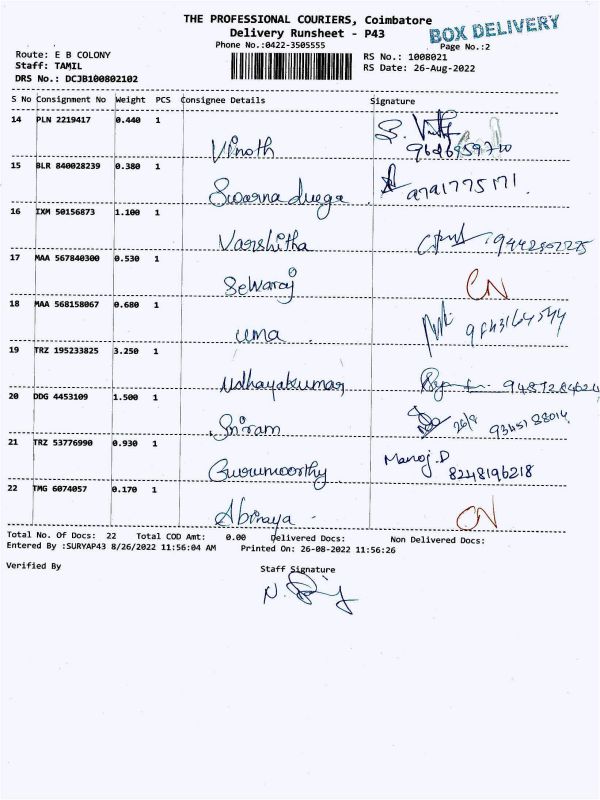 THE PROFESSIONAL COURIERS, Coimbatore
BOX DELIVERY
Delivery Runsheet - P43
Phone No.:0422-3505555
Page No.:2
Route: E B COLONY
RS No.: 1008021
Staff: TAMIL
RS Date: 26-Aug-2022
DRS No.: DCJB100802102
S No Consignment No Weight PCS Consignee Details Signature
14 PLN 2219417 0.440 1
Vinoth
15 BLR 840028239 0.380 1
Swarna durga 9791775171.
16 IXM 50156873 1.100 1
Varshitha
17 MAA 567840300 0.530 1
Selvaraj CN
18 MAA 568158067 0.680 1
uma
19 TRZ 195233825 3.250 1
Udhayakumar
20 DDG 4453109 1.500 1
Sriram 26/8
21 TRZ 53776990 0.930 1
Gurumoorthy Manoj.D 8248196218
22 TMG 6074057 0.170 1
Abinaya CN
Total No. Of Docs: 22 Total COD Amt: 0.00 Delivered Docs: Non Delivered Docs:
Entered By :SURYAP43 8/26/2022 11:56:04 AM Printed On: 26-08-2022 11:56:26
Verified By Staff Signature